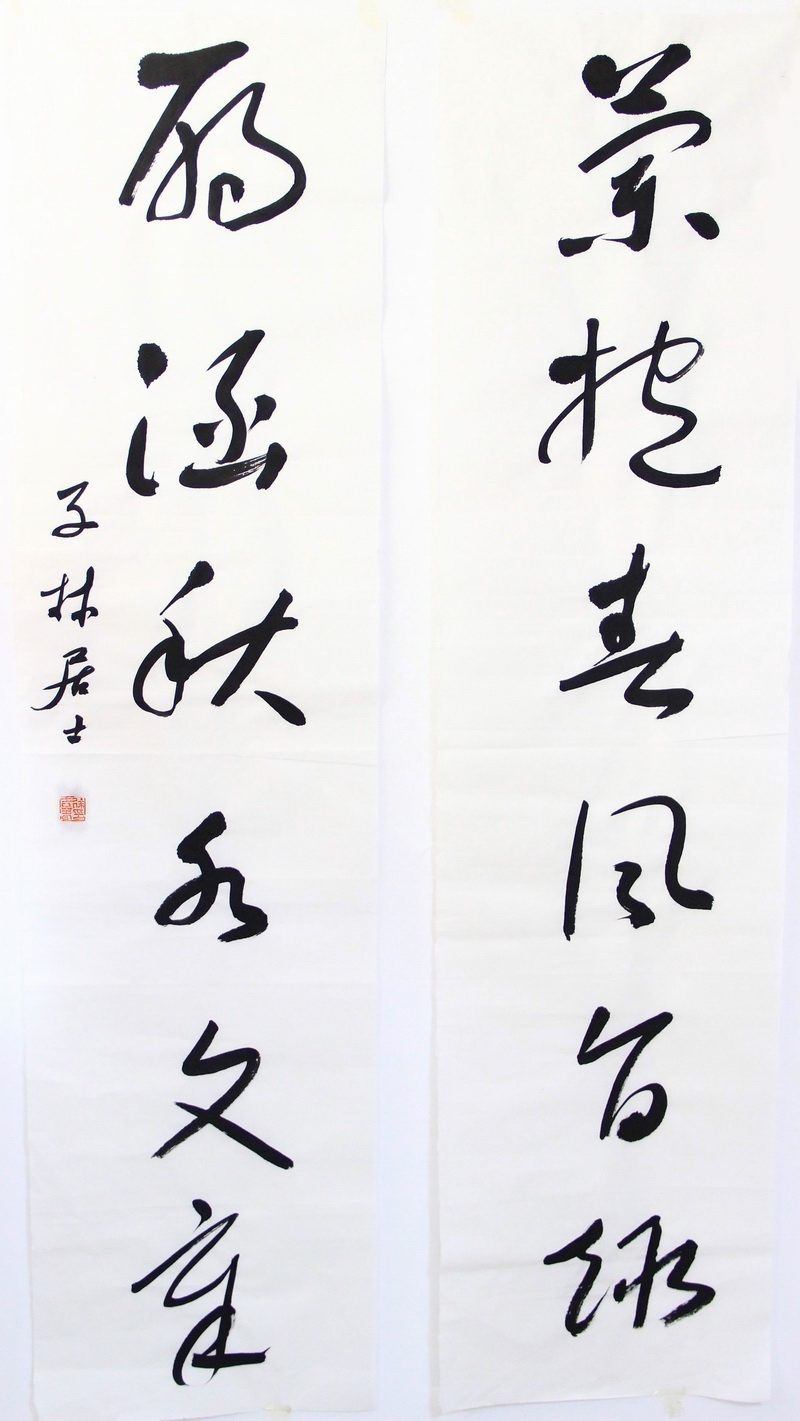 蘭抱春風旨趣
鴈涵秋水文章
子林居士